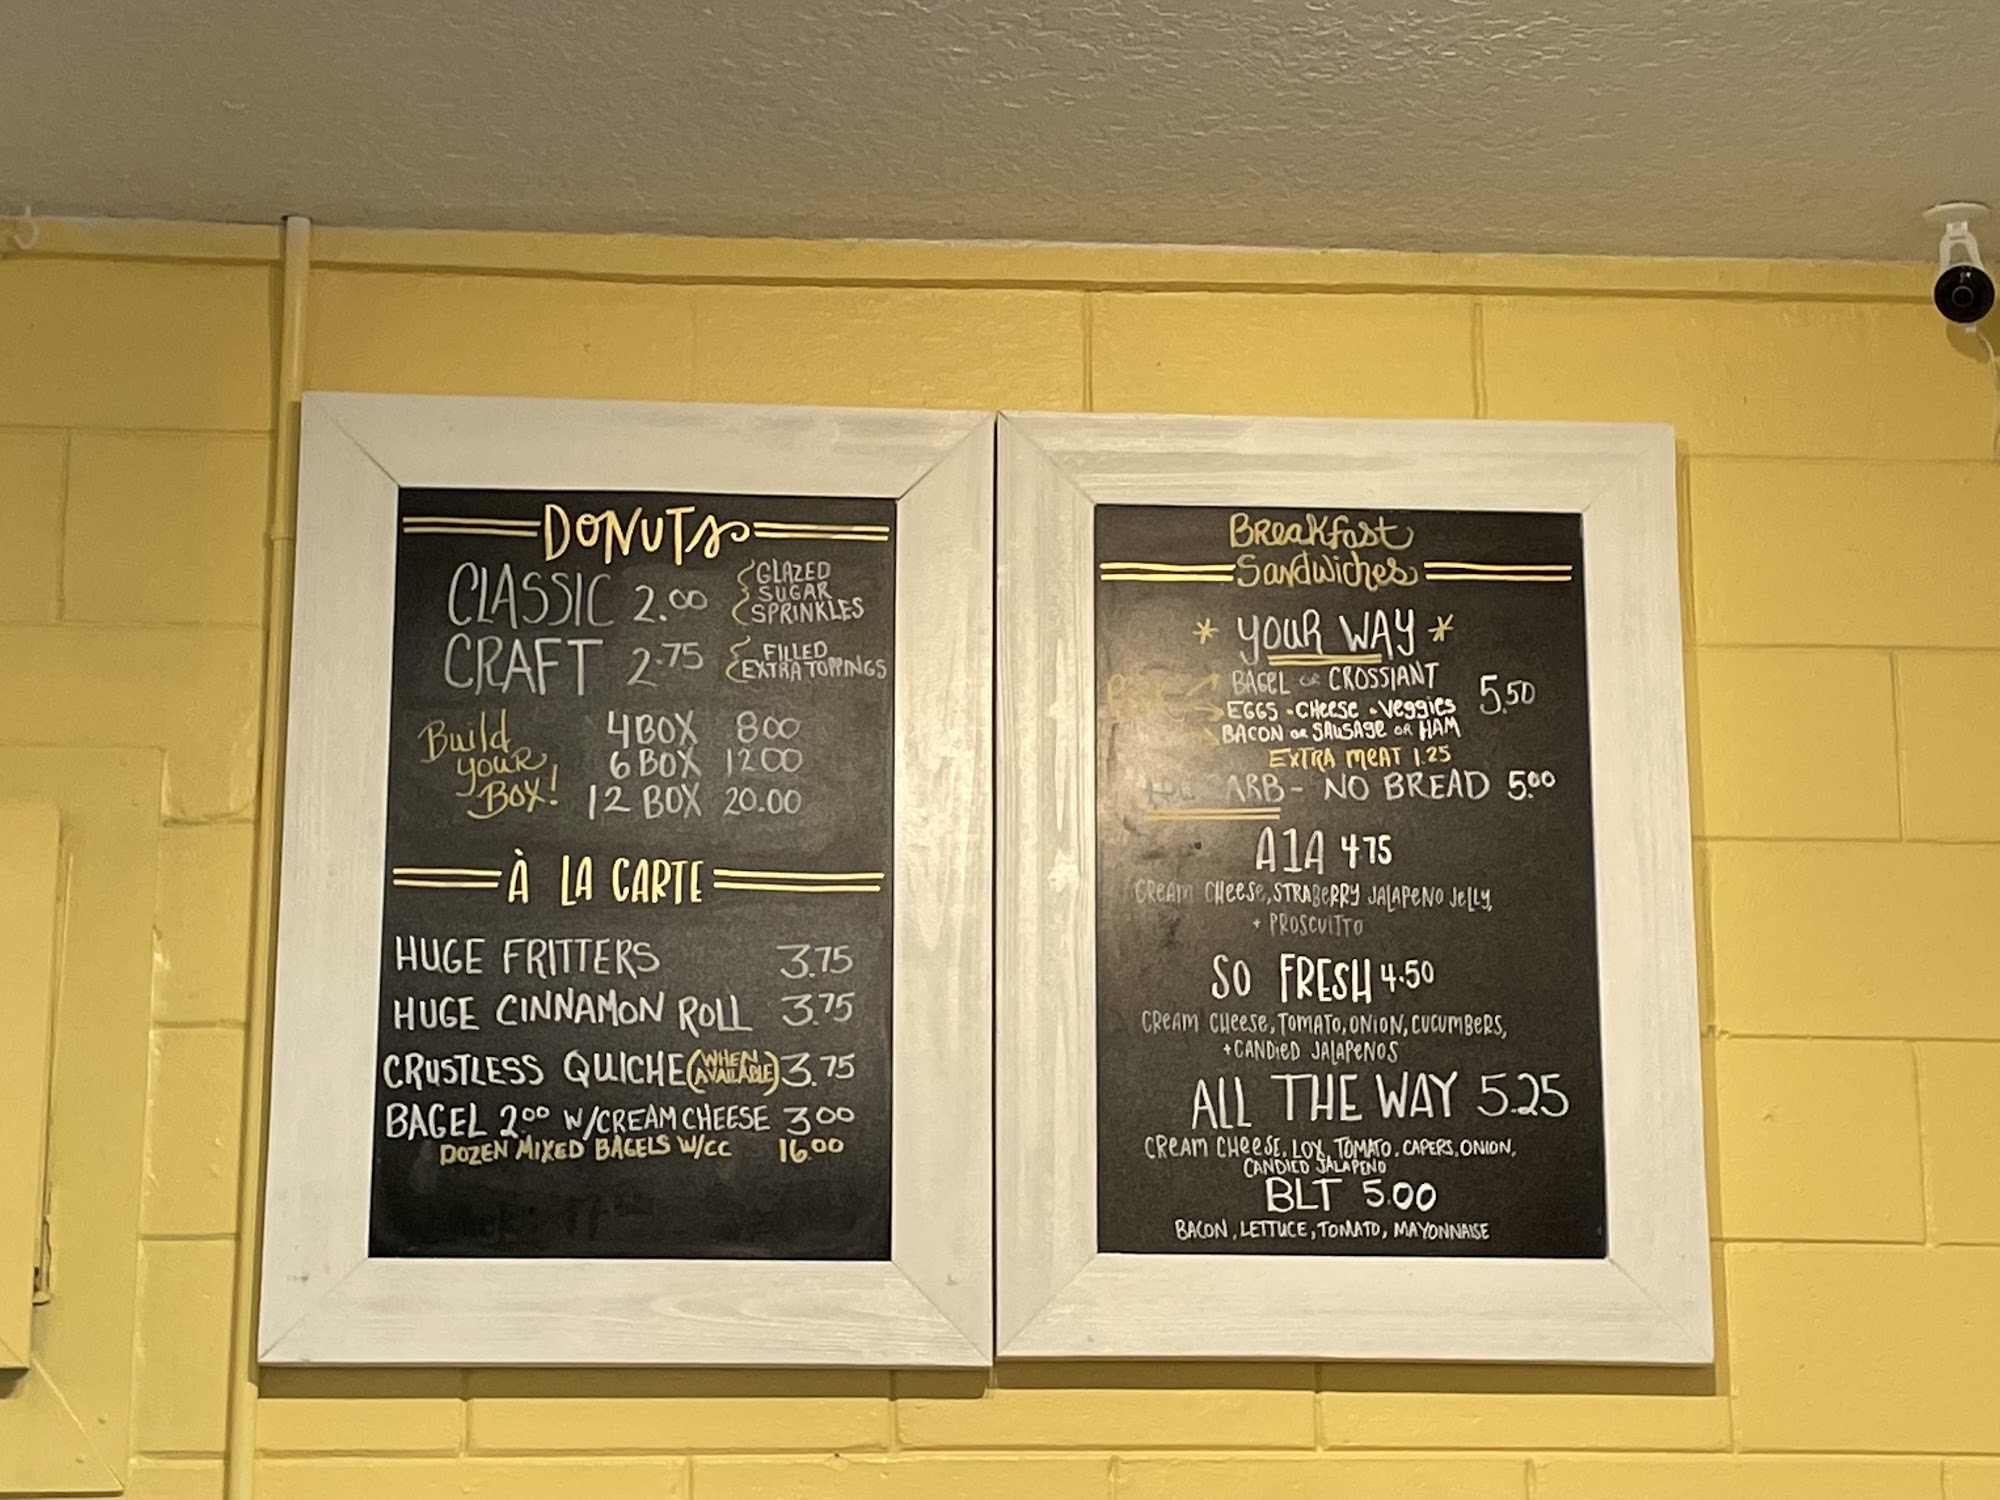 DONUTS
CLASSIC 2.00 GLAZED
SUGAR
SPRINKLES
CRAFT 2.75 FILLED
EXTRA TOPPINGS
Build your Box!
4 BOX 8.00
6 BOX 12.00
12 BOX 20.00
À LA CARTE
HUGE FRITTERS 3.75
HUGE CINNAMON ROLL 3.75
CRUSTLESS QUICHE (WHEN AVAILABLE) 3.75
BAGEL 2.00 W/CREAM CHEESE 3.00
DOZEN MIXED BAGELS W/CC 16.00
Breakfast
Sandwiches
* YOUR WAY *
BAGEL or CROSSIANT 5.50
EGGS - CHEESE - VEGGIES
BACON or SAUSAGE or HAM
EXTRA MEAT 1.25
ARB - NO BREAD 5.00
A1A 4.75
CREAM CHEESE, STRABERRY JALAPENO JELLY,
+ PROSCUITTO
SO FRESH 4.50
CREAM CHEESE, TOMATO, ONION, CUCUMBERS,
+CANDIED JALAPENOS
ALL THE WAY 5.25
CREAM CHEESE, LOX, TOMATO, CAPERS, ONION,
CANDIED JALAPENO
BLT 5.00
BACON, LETTUCE, TOMATO, MAYONNAISE